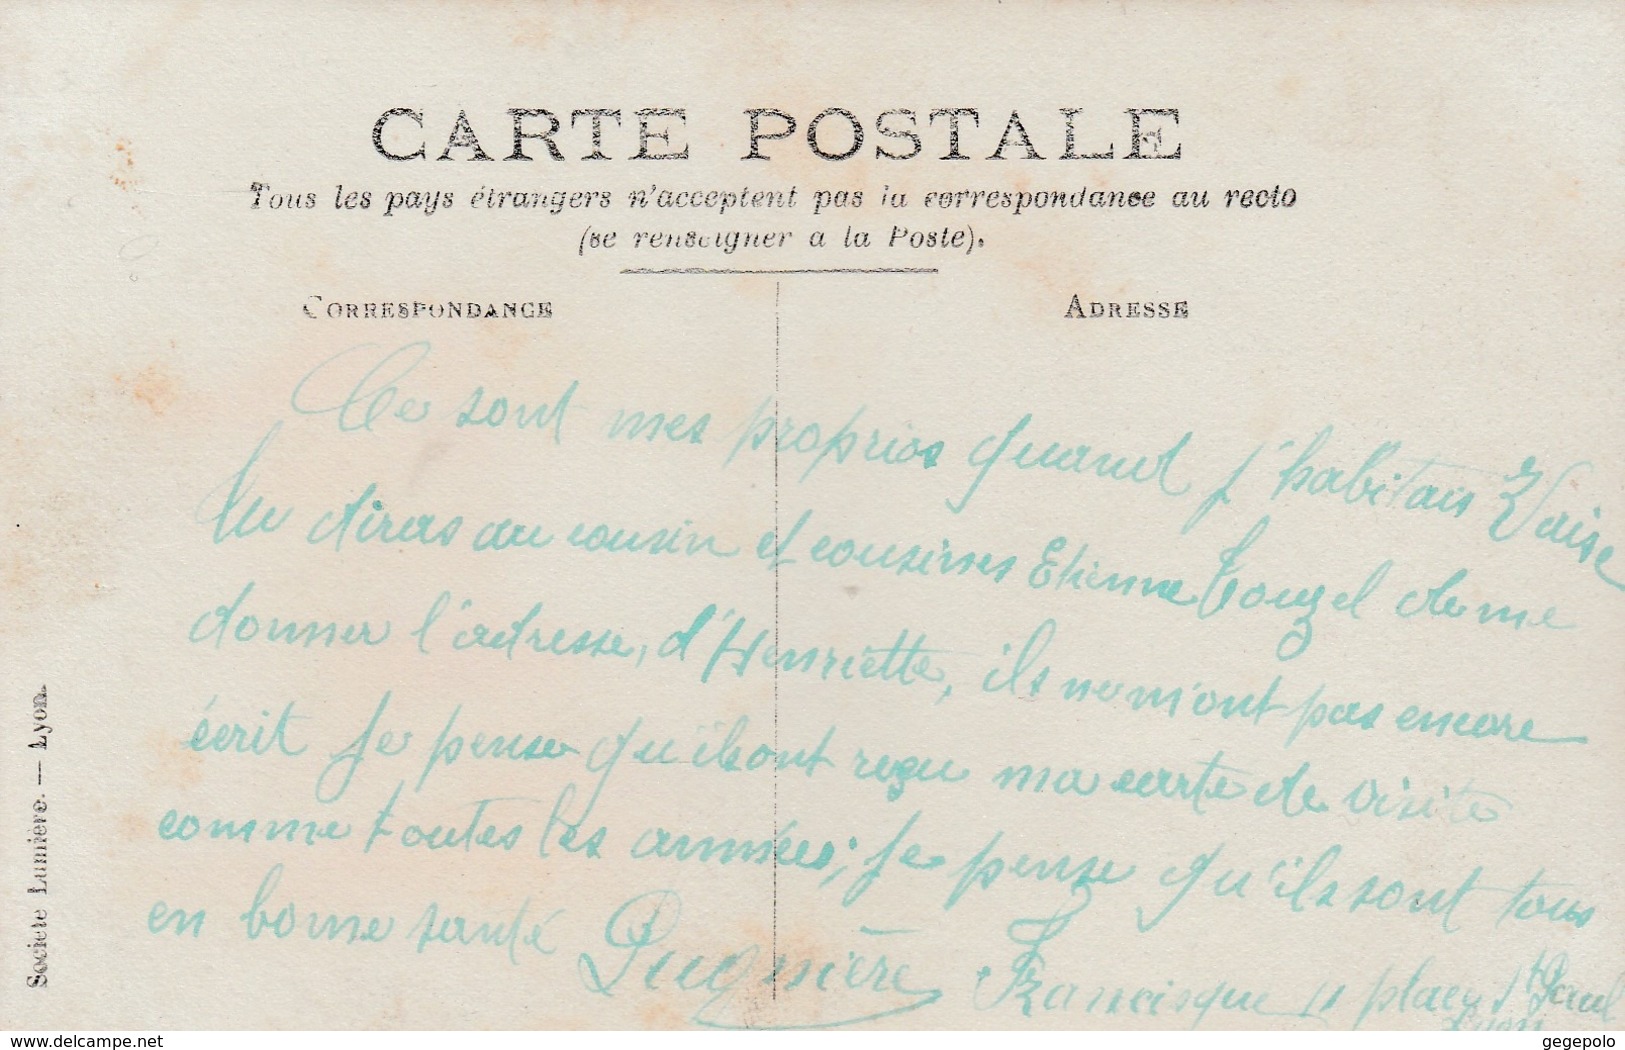 CARTE POSTALE
Tous les pays étrangers n'acceptent pas la correspondance au recto
(se renseigner a la Poste).
CORRESPONDANCE
ADRESSE
Ce sont mes proprios quand j'habitais Vaise
tu diras au cousin et cousines Etienne Touzel de me
donner l'adresse, d'Henriette, ils ne m'ont pas encore
écrit je pense qu'ils ont reçu ma carte de visite
comme toutes les années; je pense qu'ils sont tous
en bonne santé Pugnière Francisque 11 place St Paul
Lyon
Societe Lumière. — Lyon.
www.delcampe.net
gegepolo